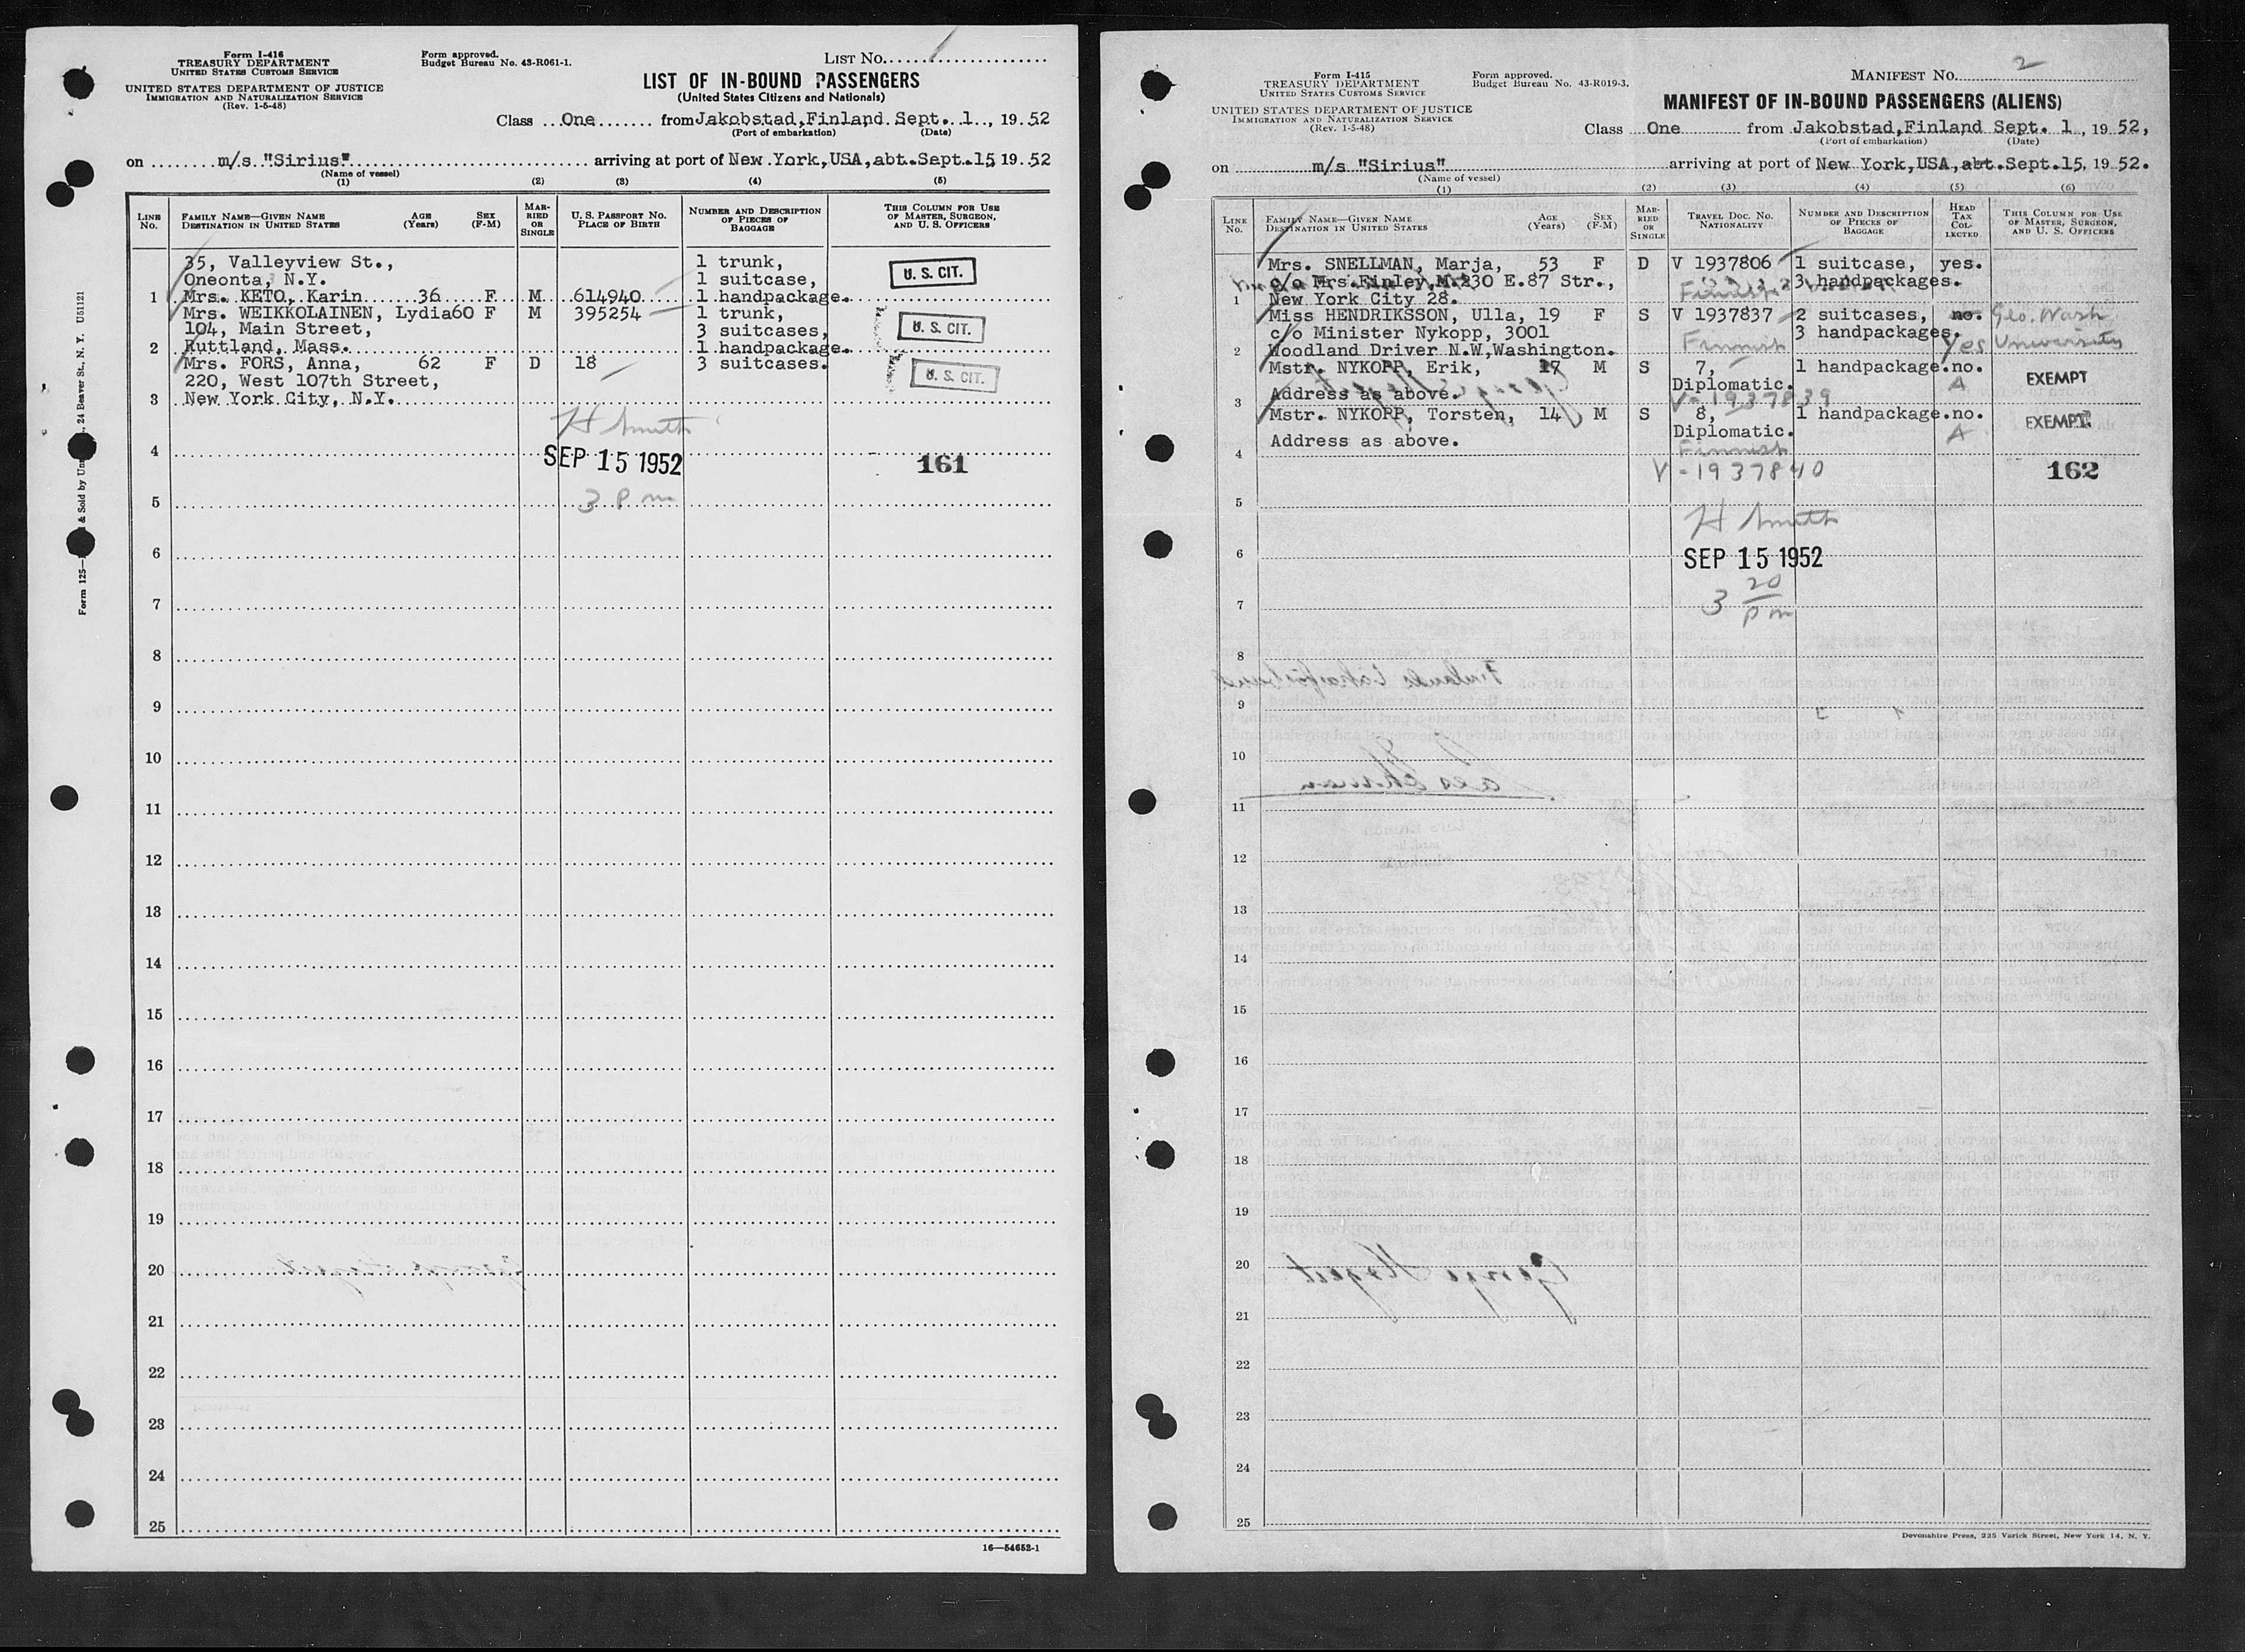 Form I-416
TREASURY DEPARTMENT
UNITED STATES CUSTOMS SERVICE
UNITED STATES DEPARTMENT OF JUSTICE
IMMIGRATION AND NATURALIZATION SERVICE
(Rev. 1-5-48)
Form approved.
Budget Bureau No. 43-R061-1.
LIST No. 1
LIST OF IN-BOUND PASSENGERS
(United States Citizens and Nationals)
Class One from Jakobstad, Finland Sept. 1., 19.52
(Port of embarkation) (Date)
on m/s. "Sirius" arriving at port of New York, USA, abt. Sept. 15 19.52
(Name of vessel)
(1) (2) (3) (4) (5)
LINE No.
FAMILY NAME—GIVEN NAME
DESTINATION IN UNITED STATES
AGE (Years)
SEX (F-M)
MARRIED OR SINGLE
U. S. PASSPORT No.
PLACE OF BIRTH
NUMBER AND DESCRIPTION OF PIECES OF BAGGAGE
THIS COLUMN FOR USE OF MASTER, SURGEON, AND U. S. OFFICERS
35, Valleyview St., 1 trunk,
Oneonta, N.Y. 1 suitcase, U. S. CIT.
1 Mrs. KETO, Karin 36 F M 614940 1 handpackage.
Mrs. WEIKKOLAINEN, Lydia 60 F M 395254 1 trunk,
104, Main Street, 3 suitcases, U. S. CIT.
2 Ruttland, Mass. 1 handpackage.
Mrs. FORS, Anna, 62 F D 18 3 suitcases. U. S. CIT.
220, West 107th Street,
3 New York City, N.Y.
H Smith
4 SEP 15 1952 161
5 3 P m
6
7
8
9
10
11
12
13
14
15
16
17
18
19
20
21
22
23
24
25
16—54652-1
Form I-415
TREASURY DEPARTMENT
UNITED STATES CUSTOMS SERVICE
UNITED STATES DEPARTMENT OF JUSTICE
IMMIGRATION AND NATURALIZATION SERVICE
(Rev. 1-5-48)
Form approved.
Budget Bureau No. 43-R019-3.
MANIFEST No. 2
MANIFEST OF IN-BOUND PASSENGERS (ALIENS)
Class One from Jakobstad, Finland Sept. 1, 19 52,
(Port of embarkation) (Date)
on m/s "Sirius" arriving at port of New York, USA, abt. Sept. 15, 19 52.
(Name of vessel)
(1) (2) (3) (4) (5) (6)
LINE No.
FAMILY NAME—GIVEN NAME
DESTINATION IN UNITED STATES
AGE (Years)
SEX (F-M)
MARRIED OR SINGLE
TRAVEL DOC. No.
NATIONALITY
NUMBER AND DESCRIPTION OF PIECES OF BAGGAGE
HEAD TAX COLLECTED
THIS COLUMN FOR USE OF MASTER, SURGEON, AND U. S. OFFICERS
Mrs. SNELLMAN, Marja, 53 F D V 1937806 1 suitcase, yes.
c/o Mrs. Finley, M. 230 E. 87 Str., Finnish 3 handpackages.
1 New York City 28.
Miss HENDRIKSSON, Ulla, 19 F S V 1937837 2 suitcases, no. Geo. Wash
c/o Minister Nykopp, 3001 3 handpackages.
2 Woodland Driver N.W, Washington. Finnish Yes University
Mstr. NYKOPP, Erik, 17 M S 7, 1 handpackage. no. EXEMPT
Diplomatic. A
3 Address as above. V-1937839
Mstr. NYKOPP, Torsten, 14 M S 8, 1 handpackage. no. EXEMPT
Diplomatic. A
Address as above.
4 Finnish
V-1937840 162
5
H Smith
6 SEP 15 1952
7 3 20 pm
8
9
10
11
12
13
14
15
16
17
18
19
20
21
22
23
24
25
Devonshire Press, 225 Varick Street, New York 14, N. Y.